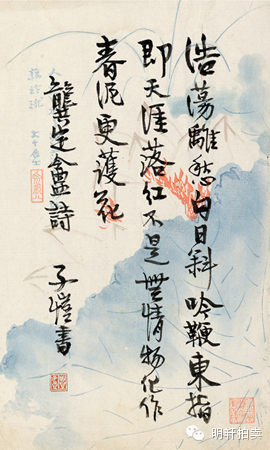 浩蕩離愁白日斜吟鞭東指
即天涯落紅不是無情物化作
春泥更護花
龔定盦詩
子愷書
明轩拍卖